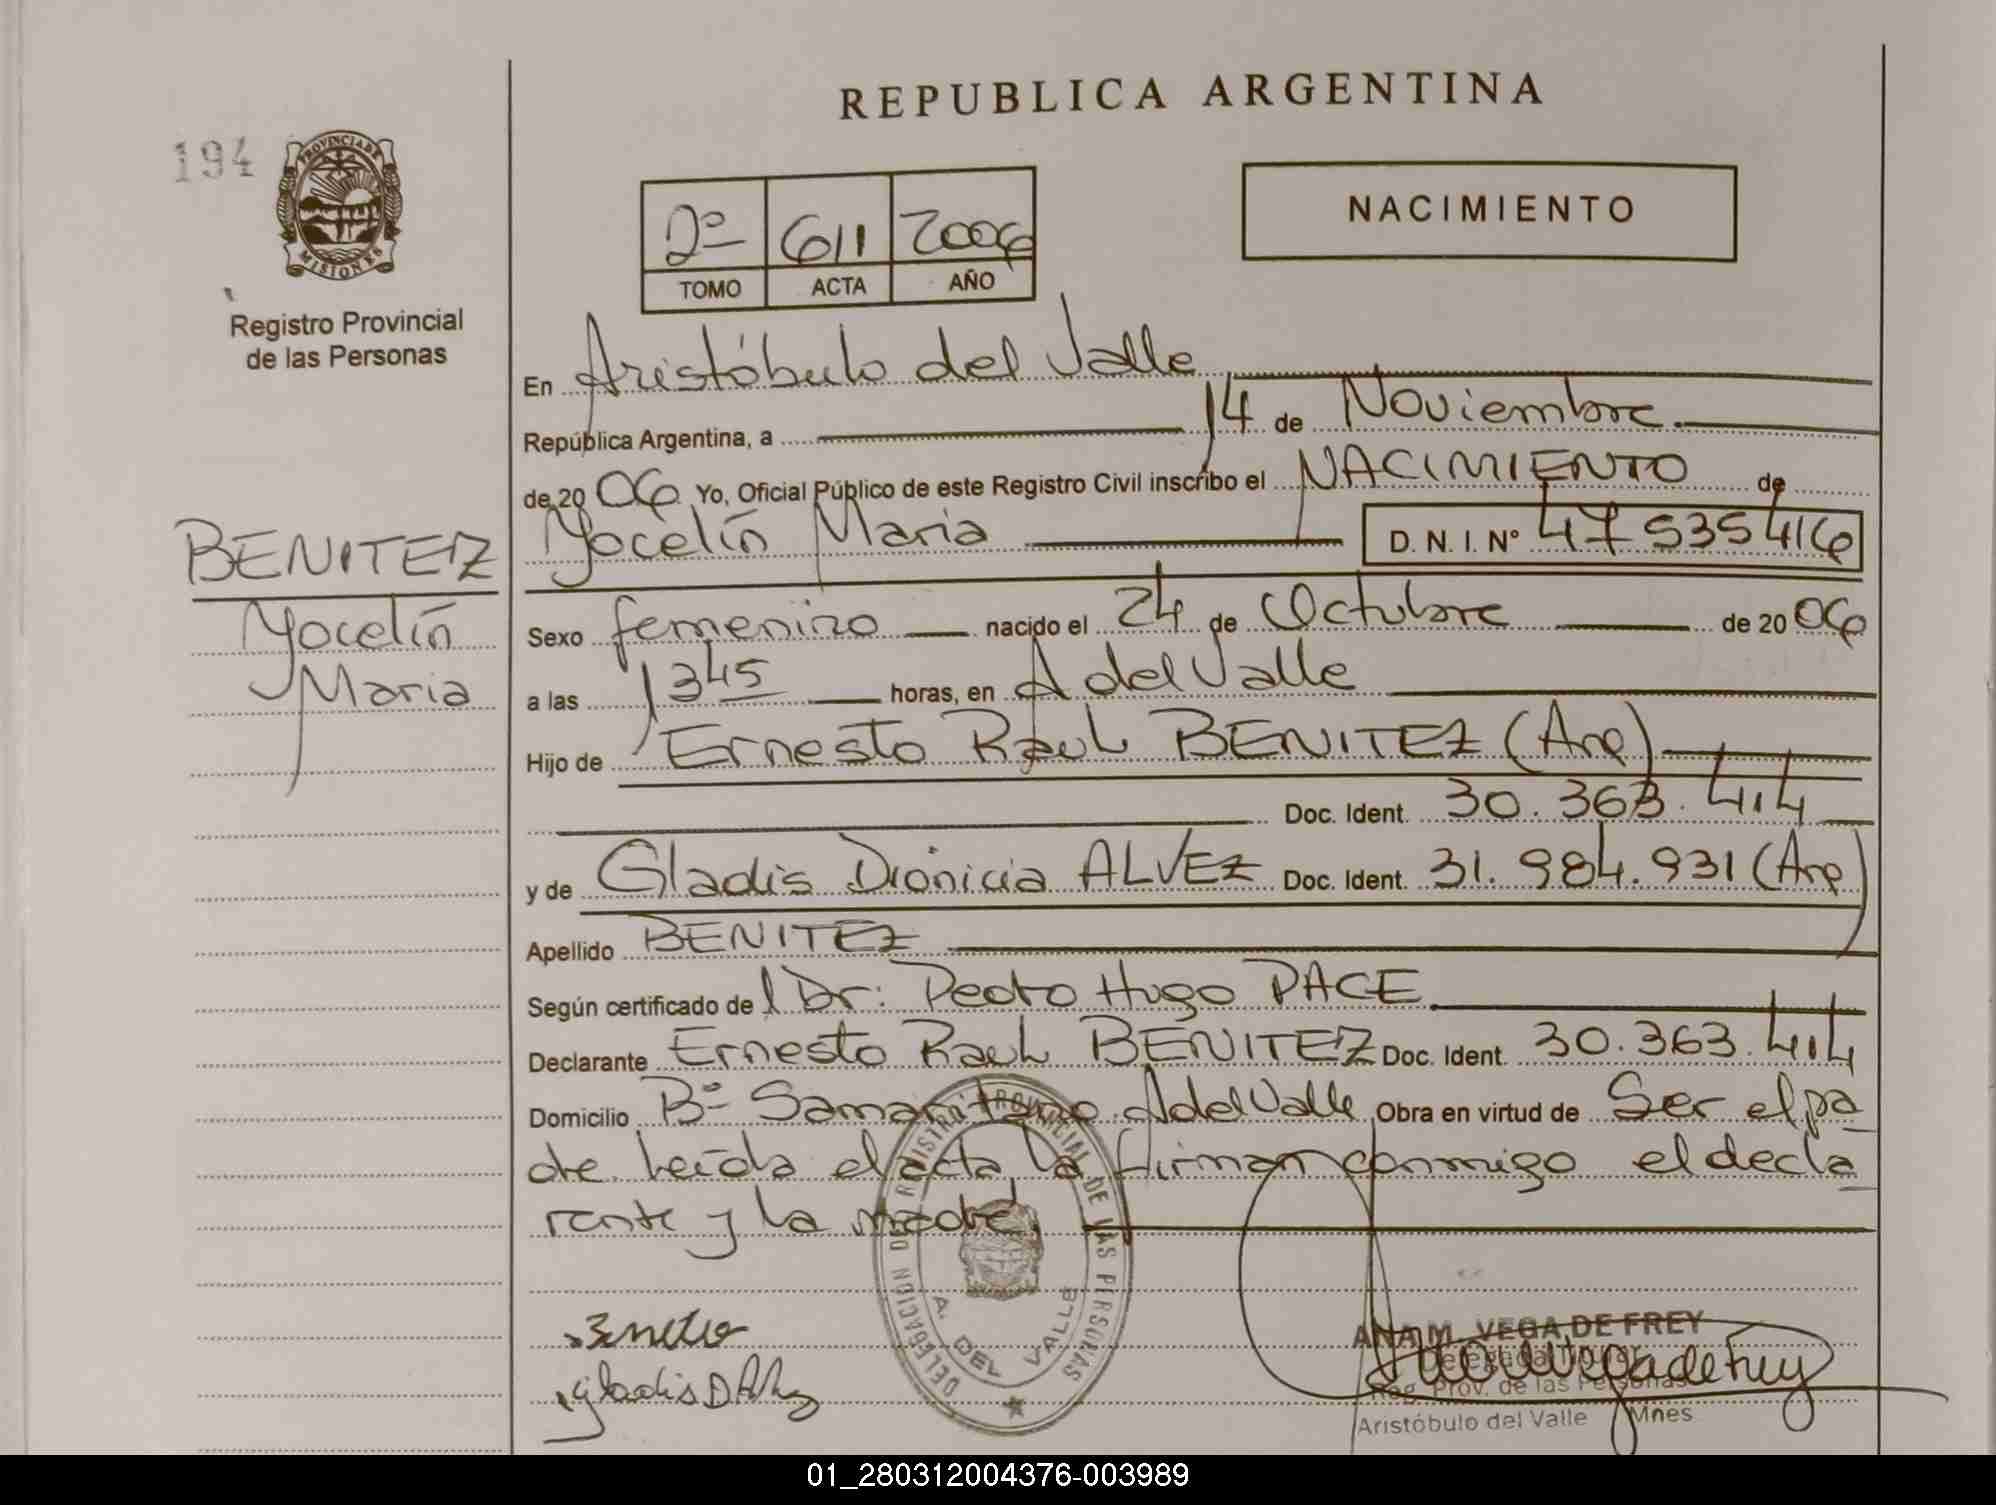 REPUBLICA ARGENTINA
194
PROVINCIA DE
MISIONES
Registro Provincial
de las Personas
2º 611 2006
TOMO ACTA AÑO
NACIMIENTO
En Aristóbulo del Valle
República Argentina, a 14 de Noviembre
de 20 06 Yo, Oficial Público de este Registro Civil inscribo el NACIMIENTO de
Yocelín Maria D. N. I. Nº 47535416
BENITEZ
Yocelín
Maria
Sexo femenino nacido el 24 de Octubre de 20 06
a las 1345 horas, en A del Valle
Hijo de Ernesto Raul BENITEZ (Arg)
Doc. Ident. 30.363.414
y de Gladis Dionicia ALVEZ Doc. Ident. 31.984.931 (Arg)
Apellido BENITEZ
Según certificado de l Dr: Pedro Hugo PACE
Declarante Ernesto Raul BENITEZ Doc. Ident. 30.363.414
Domicilio Bº Samaritano A del Valle Obra en virtud de Ser el pa
dre. Leída el acta la firman conmigo el decla
rante y la madre.
DELEGACION DEL REGISTRO PROVINCIAL DE LAS PERSONAS
A. DEL VALLE
Gladis D
ANA M. VEGA DE FREY
Delegada Titular
Reg. Prov. de las Personas
Aristóbulo del Valle Mnes
01_280312004376-003989